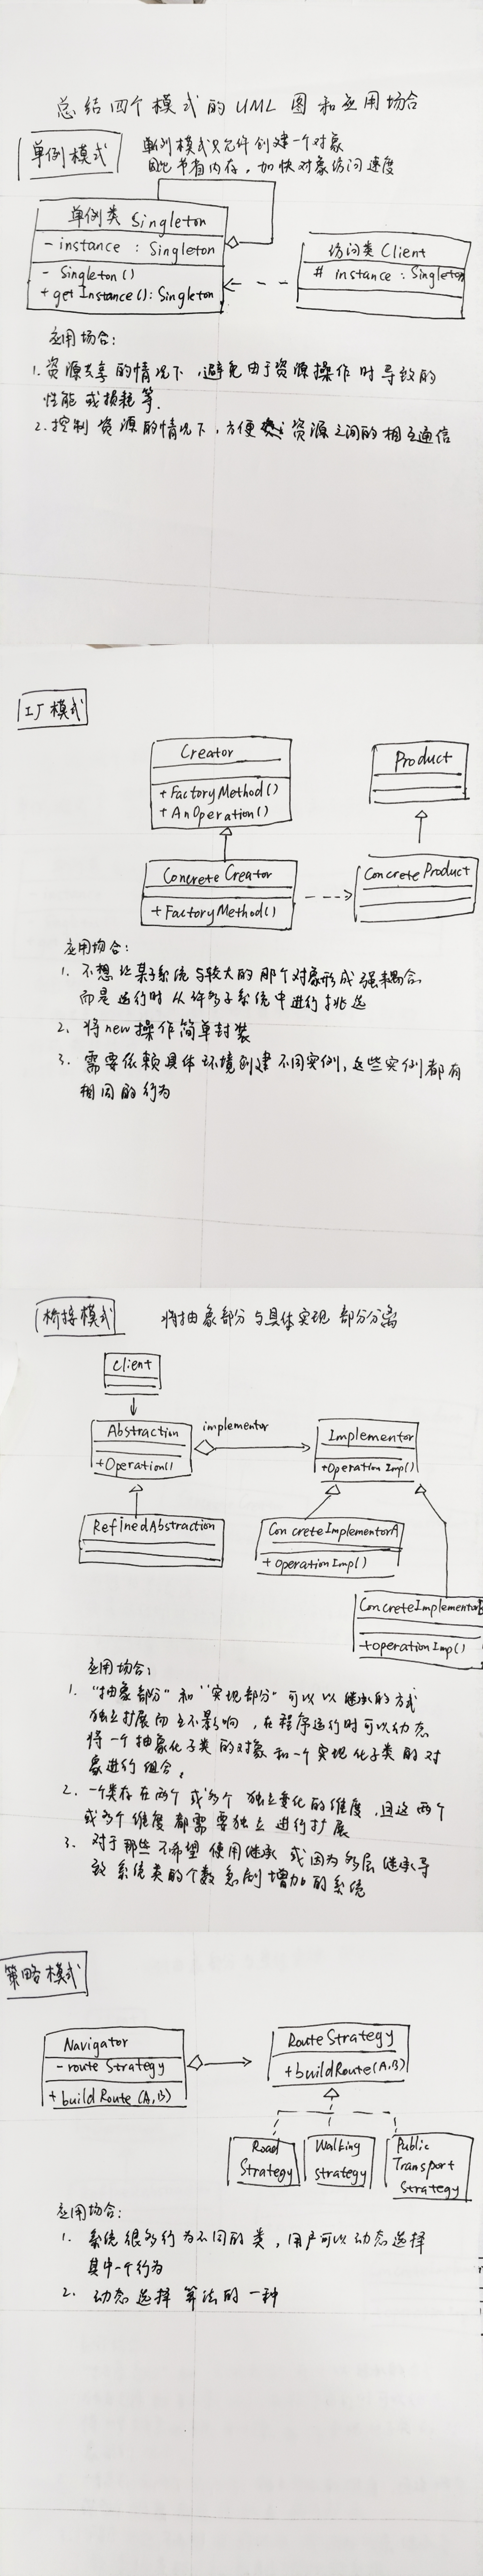 总结四个模式的UML图和应用场合
单例模式
单例模式只允许创建一个对象
因此节省内存，加快对象访问速度
单例类 Singleton
- instance : Singleton
- Singleton()
+ getInstance(): Singleton
访问类 Client
# instance : Singleton
应用场合：
1. 资源共享的情况下，避免由于资源操作时导致的
性能或损耗等.
2. 控制资源的情况下，方便资源之间的相互通信
工厂模式
Creator
+ FactoryMethod()
+ AnOperation()
Product
Concrete Creator
+ FactoryMethod()
Concrete Product
应用场合：
1. 不想让某子系统与较大的那个对象形成强耦合
而是运行时从许多子系统中进行挑选
2. 将new操作简单封装
3. 需要依赖具体环境创建不同实例，这些实例都有
相同的行为
桥接模式
将抽象部分与具体实现部分分离
Client
Abstraction
+Operation()
implementor
Implementor
+Operation Imp()
RefinedAbstraction
ConcreteImplementorA
+ OperationImp()
ConcreteImplementorB
+operationImp()
应用场合：
1. “抽象部分”和“实现部分”可以以继承的方式
独立扩展而互不影响，在程序运行时可以动态
将一个抽象化子类的对象和一个实现化子类的对
象进行组合。
2. 一个类存在两个或多个独立变化的维度，且这两个
或多个维度都需要独立进行扩展
3. 对于那些不希望使用继承或因为多层继承导
致系统类的个数急剧增加的系统
策略模式
Navigator
- route Strategy
+ build Route (A,B)
Route Strategy
+buildRoute(A,B)
Road
Strategy
Walking
strategy
Public
Transport
Strategy
应用场合：
1. 系统很多行为不同的类，用户可以动态选择
其中一个行为
2. 动态选择算法的一种